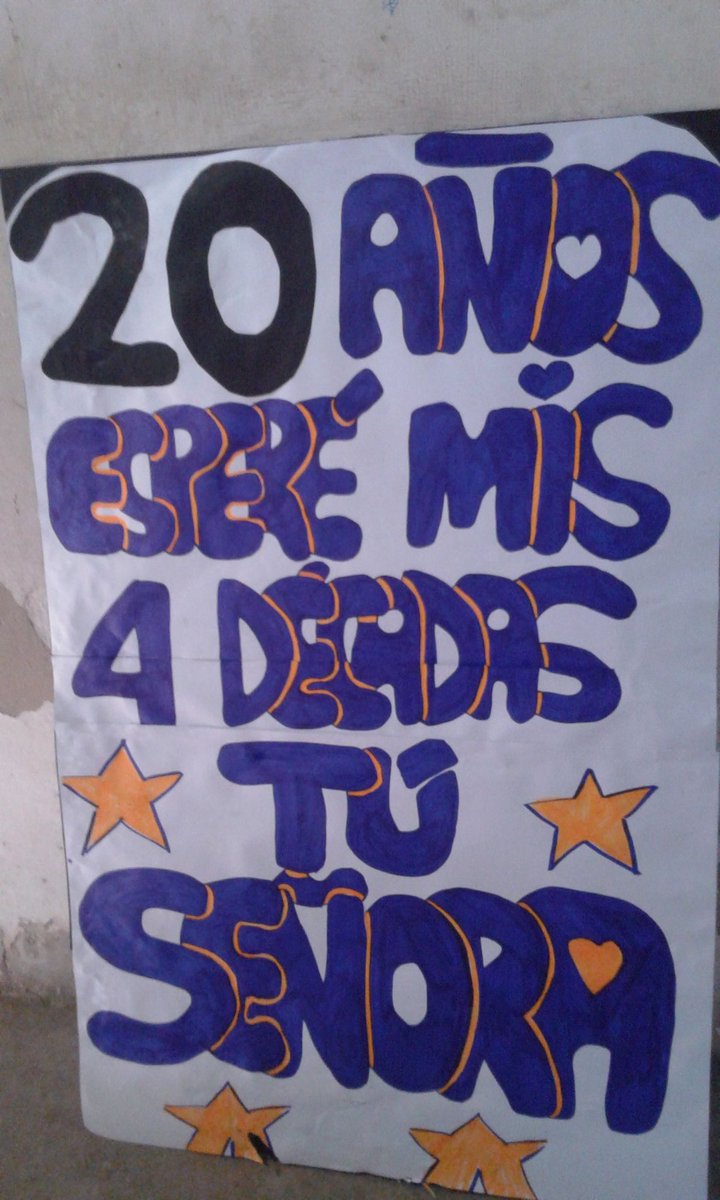 20 AÑOS
ESPERÉ MIS
4 DÉCADAS
TÚ
SEÑORA